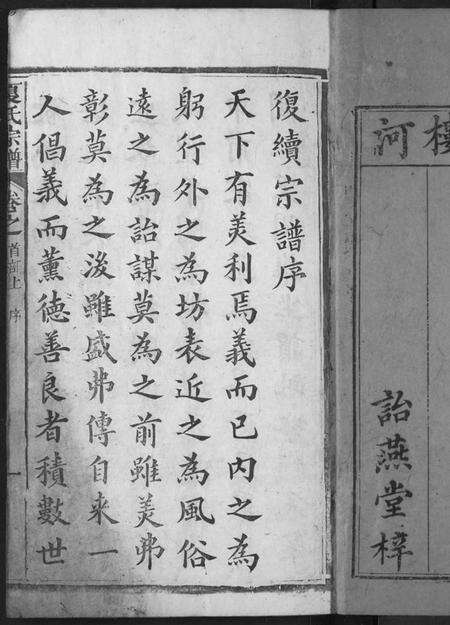 樓
河
詒燕堂梓
復續宗譜序
天下有美利焉義而已内之為
躬行外之為坊表近之為風俗
遠之為詒謀莫為之前雖美弗
彰莫為之後雖盛弗傳自来一
人倡義而薰徳善良者積數世
夏氏宗譜 卷之一 首 上 序 一